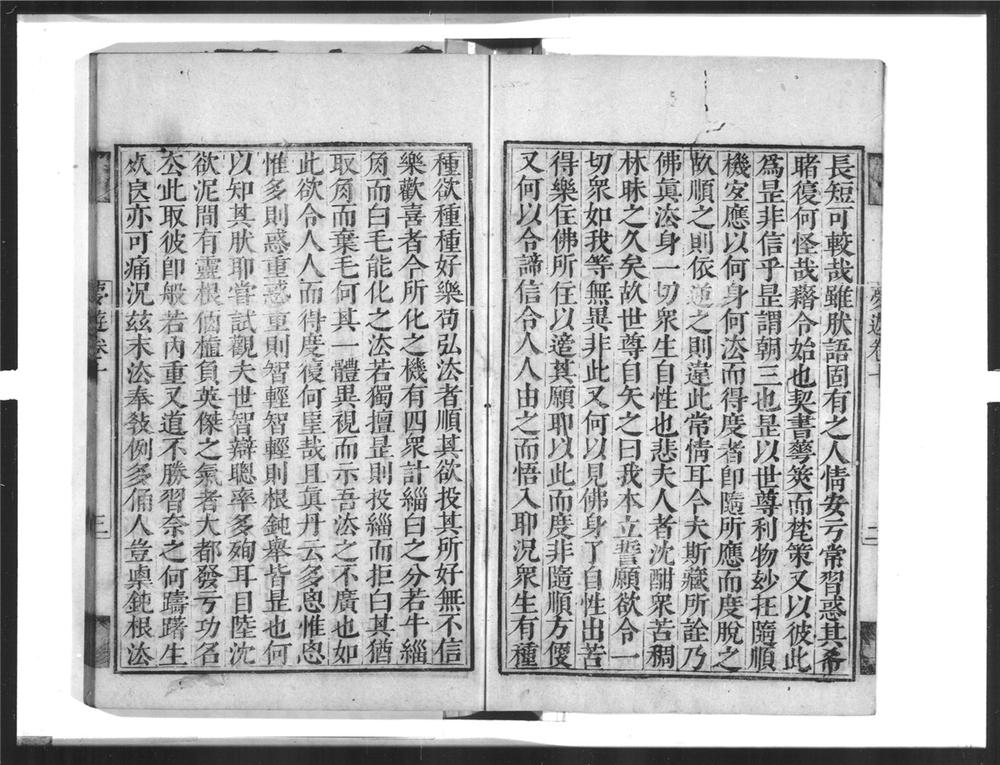 長短可較哉雖肰語固有之人情安亏常習惑其希
睹復何怪哉藉令始也契書薎筴而梵策又以彼此
爲昰非信乎昰謂朝三也昰以世尊利物妙在隨順
機宐應以何身何法而得度者卽隨所應而度脫之
故順之則依逆之則違此常情耳今夫斯藏所詮乃
佛眞法身一切衆生自性也悲夫人者沈酣衆苦稠
林昧之久矣故世尊自矢之曰我本立誓願欲令一
切衆如我等無異非此又何以見佛身了自性出苦
得樂住佛所住以遂其願耶以此而度非隨順方便
又何以令諦信令人人由之而悟入耶況衆生有種
夢遊卷十
二
種欲種種好樂茍弘法者順其欲投其所好無不信
樂歡喜者今所化之機有四衆計緇白之分若牛緇
角而白毛能化之法若獨擅昰則投緇而拒白其猶
取角而棄毛何其一體異視而示吾法之不廣也如
此欲令人人而得度復何望哉且眞丹云多悤惟悤
惟多則惑重惑重則智輕智輕則根鈍舉皆昰也何
以知其肰耶當試觀夫世智辯聰率多殉耳目陸沈
欲泥間有靈根個樁負英傑之氣者大都發亏功名
厺此取彼卽般若內重又道不勝習奈之何躊躇生
死良亦可痛況茲末法奉敎例多俑人豈桌鈍根法
夢遊卷十
三